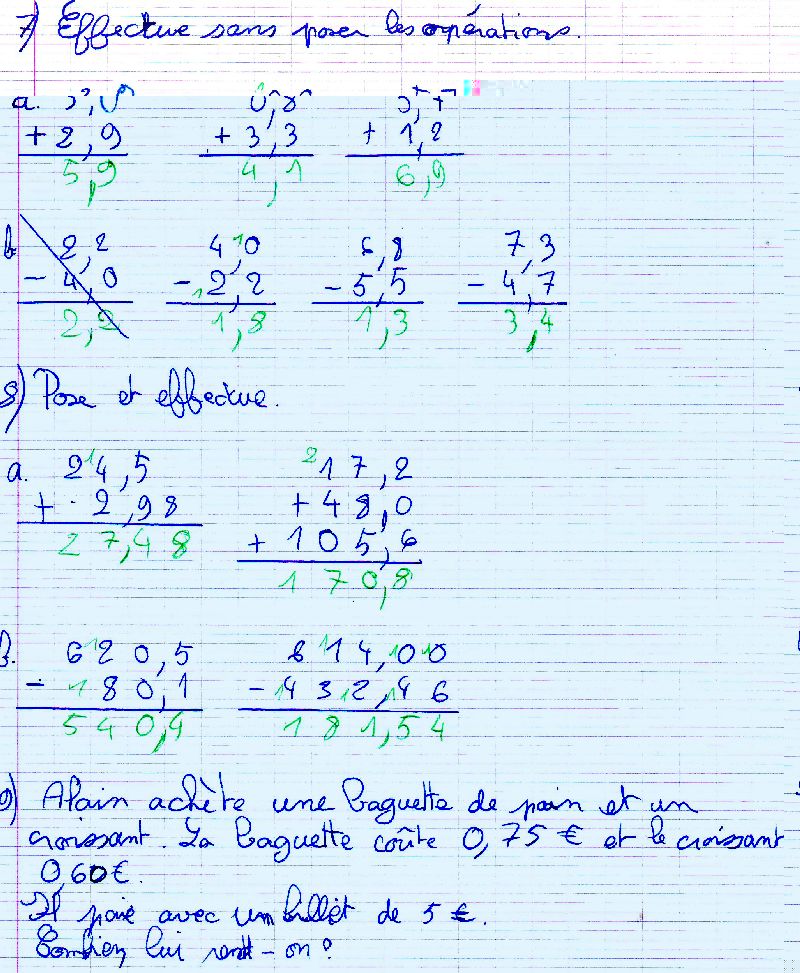 7) Effectue sans poser les opérations.
a.
+ 2,9 + 3,3 + 1,2
5,9 4,1 6,9
b 2,2 4,10 6,8 7,3
- 4,0 - 12,2 - 5,5 - 4,7
2,2 1,8 1,3 3,4
8) Pose et effectue.
a. 2 14,5 2 17,2
+ · 2,98 + 48,0
27,48 + 105,6
170,8
6 12 0,5 6 11 4,10 10
- 1 8 0,1 - 14 3 12,14 6
540,4 181,54
9) Alain achète une baguette de pain et un
croissant. La baguette coûte 0,75 € et le croissant
0,60 €.
Il paie avec un billet de 5 €.
Combien lui rend-on ?